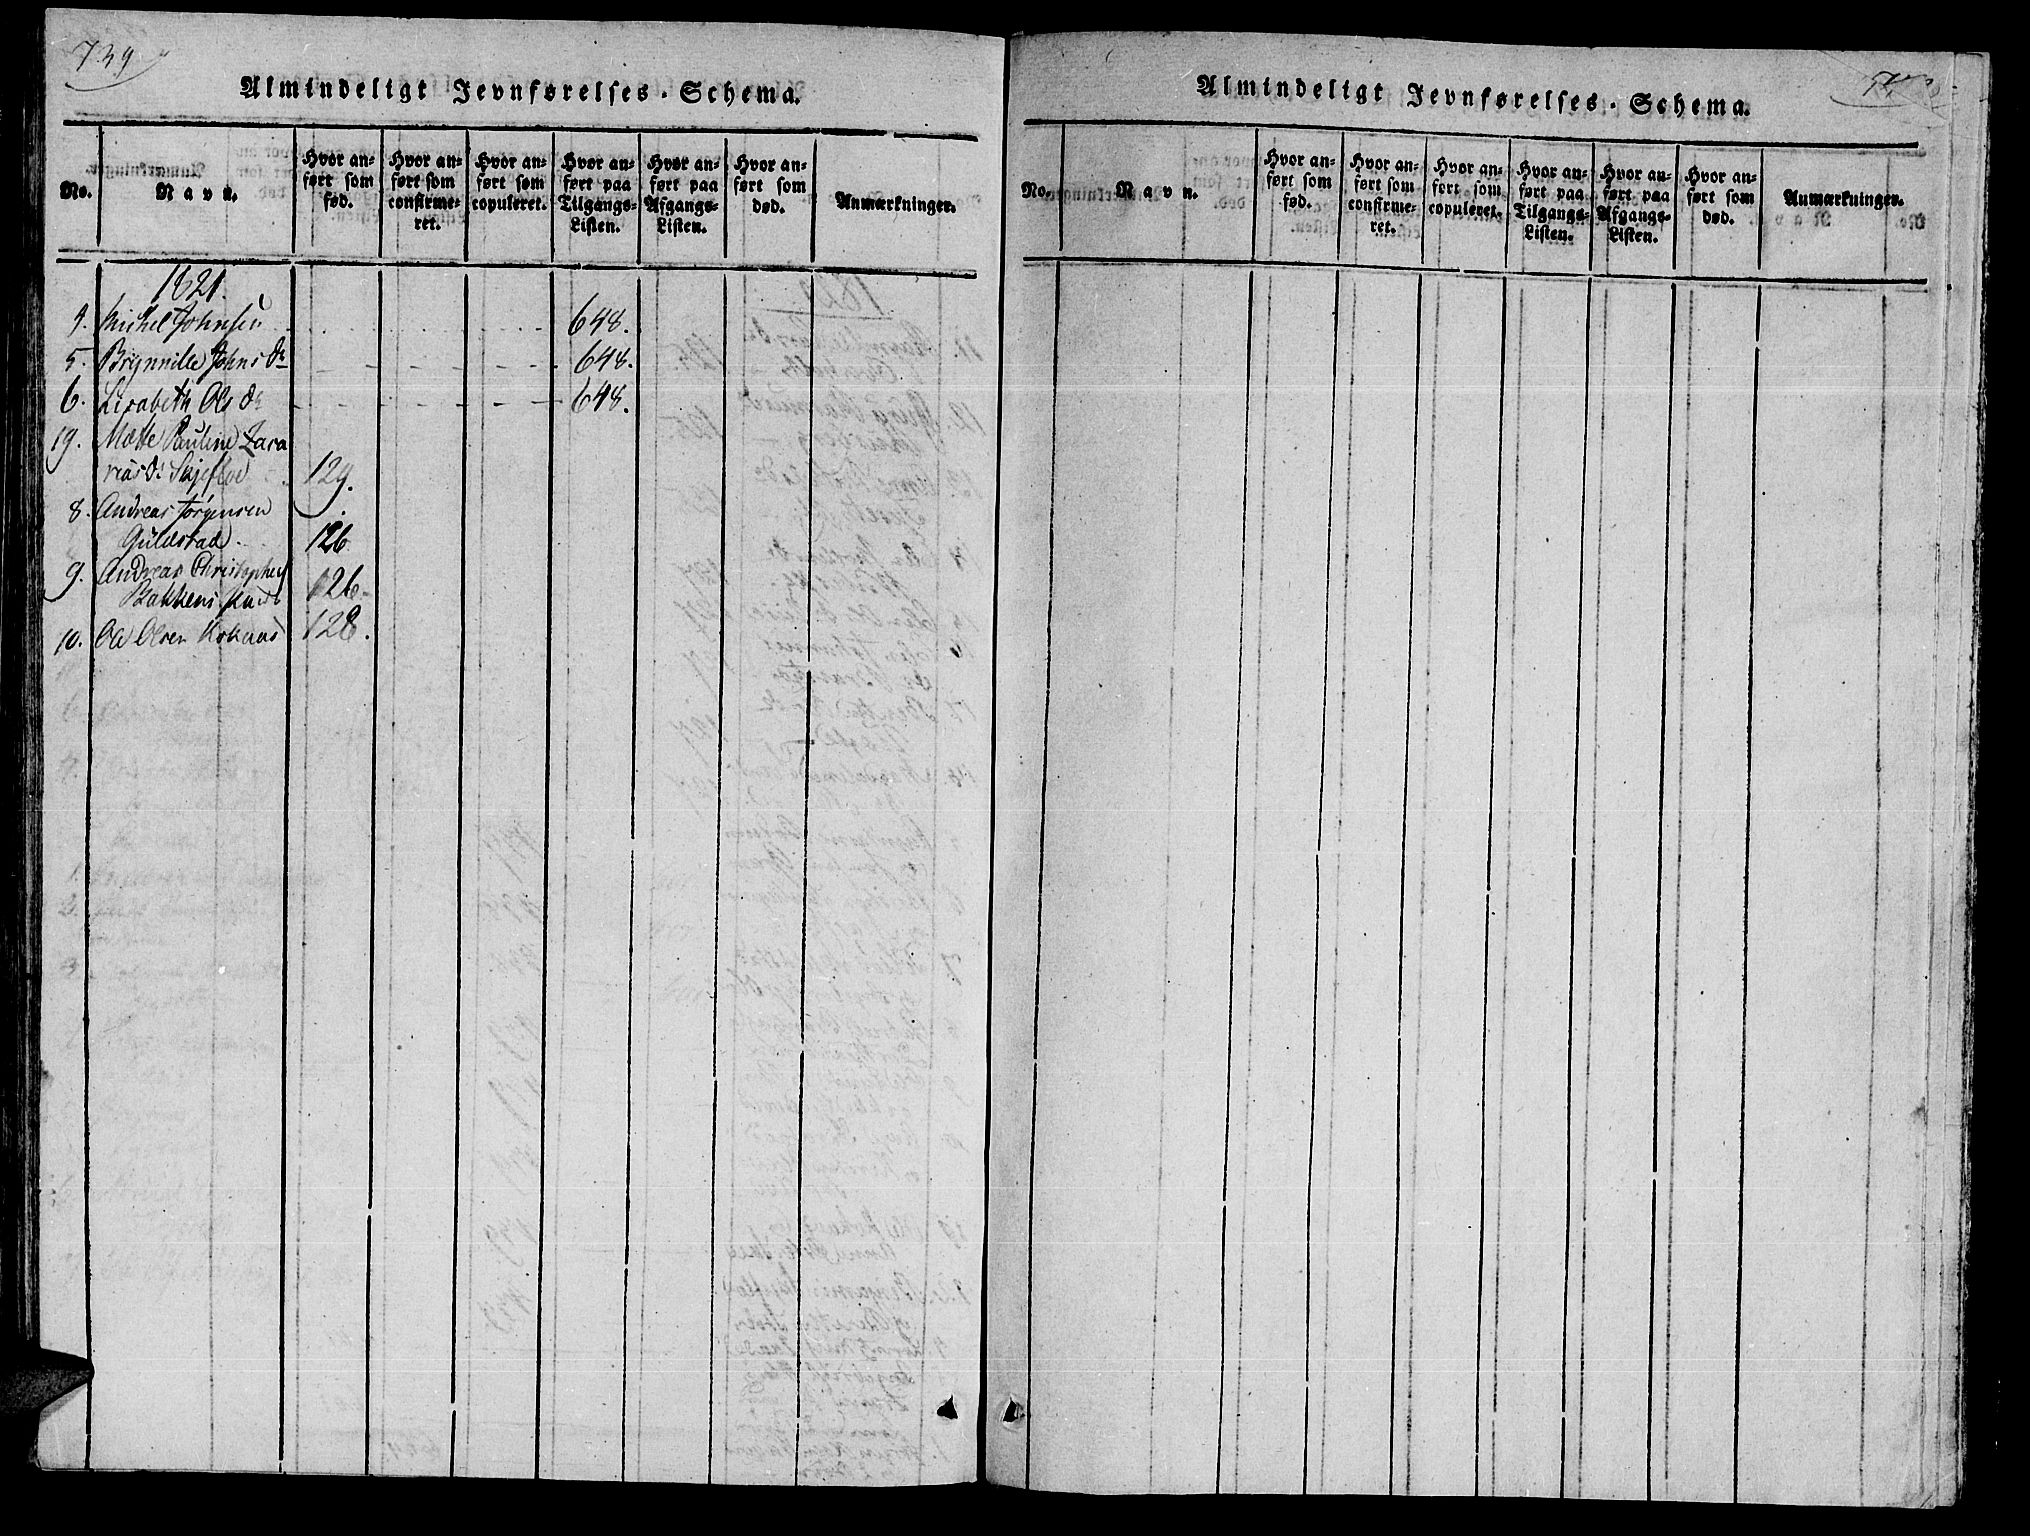 739
Almindeligt Jevnførelses-Schema.
No.
Navn.
Hvor an-
ført som
fød.
Hvor an-
ført som
confirme-
ret.
Hvor an-
ført som
copuleret.
Hvor an-
ført paa
Tilgangs-
Listen.
Hvor an-
ført paa
Afgangs-
Listen.
Hvor an-
ført som
død.
Anmærkninger.
1821.
4. Michel Johnsen 648.
5. Brynnilde Johns dr 648.
6. Lisabeth Ols dr 648.
19. Mætte Pauline Zaca
riasdr Skjefloe 129.
8. Andreas Jørgensen
Guldstad 126
9. Andreas Christophers
Bakkens 126.
10. Ole Olsen 128.
Almindeligt Jevnførelses-Schema.
No.
Navn.
Hvor an-
ført som
fød.
Hvor an-
ført som
confirme-
ret.
Hvor an-
ført som
copuleret.
Hvor an-
ført paa
Tilgangs-
Listen.
Hvor an-
ført paa
Afgangs-
Listen.
Hvor an-
ført som
død.
Anmærkninger.